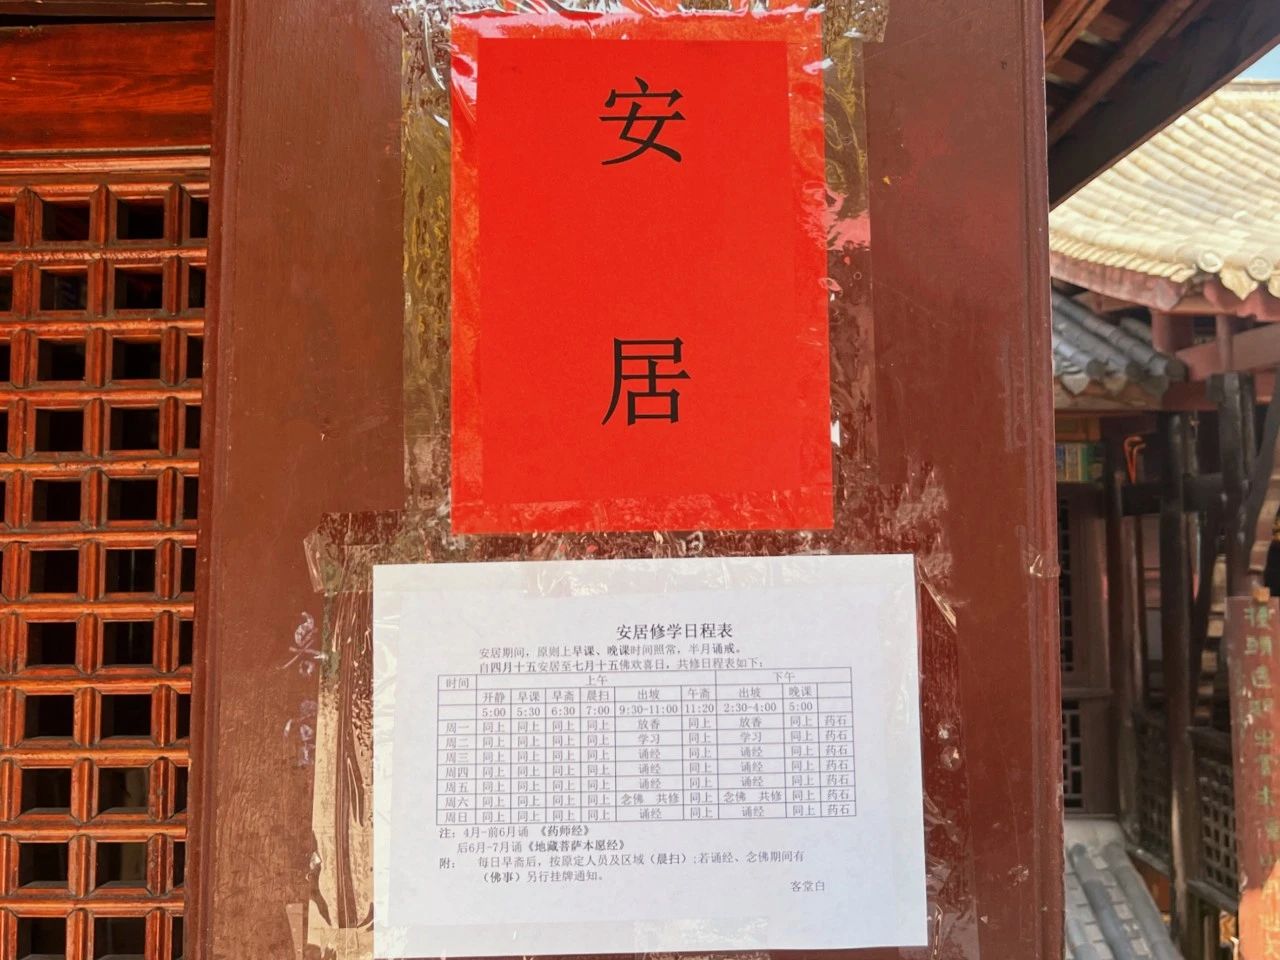 安
居
安居修学日程表
安居期间，原则上早课、晚课时间照常，半月诵戒。
自四月十五安居至七月十五佛欢喜日，共修日程表如下：
时间 上午 下午
开静 早课 早斋 晨扫 出坡 午斋 出坡 晚课
5:00 5:30 6:30 7:00 9:30-11:00 11:20 2:30-4:00 5:00
周一 同上 同上 同上 同上 放香 同上 放香 同上 药石
周二 同上 同上 同上 同上 学习 同上 学习 同上 药石
周三 同上 同上 同上 同上 诵经 同上 诵经 同上 药石
周四 同上 同上 同上 同上 诵经 同上 诵经 同上 药石
周五 同上 同上 同上 同上 诵经 同上 诵经 同上 药石
周六 同上 同上 同上 同上 念佛 共修 同上 念佛 共修 同上 药石
周日 同上 同上 同上 同上 诵经 同上 诵经 同上 药石
注：4月-前6月诵《药师经》
后6月-7月诵《地藏菩萨本愿经》
附： 每日早斋后，按原定人员及区域（晨扫）;若诵经、念佛期间有
（佛事）另行挂牌通知。
客堂白